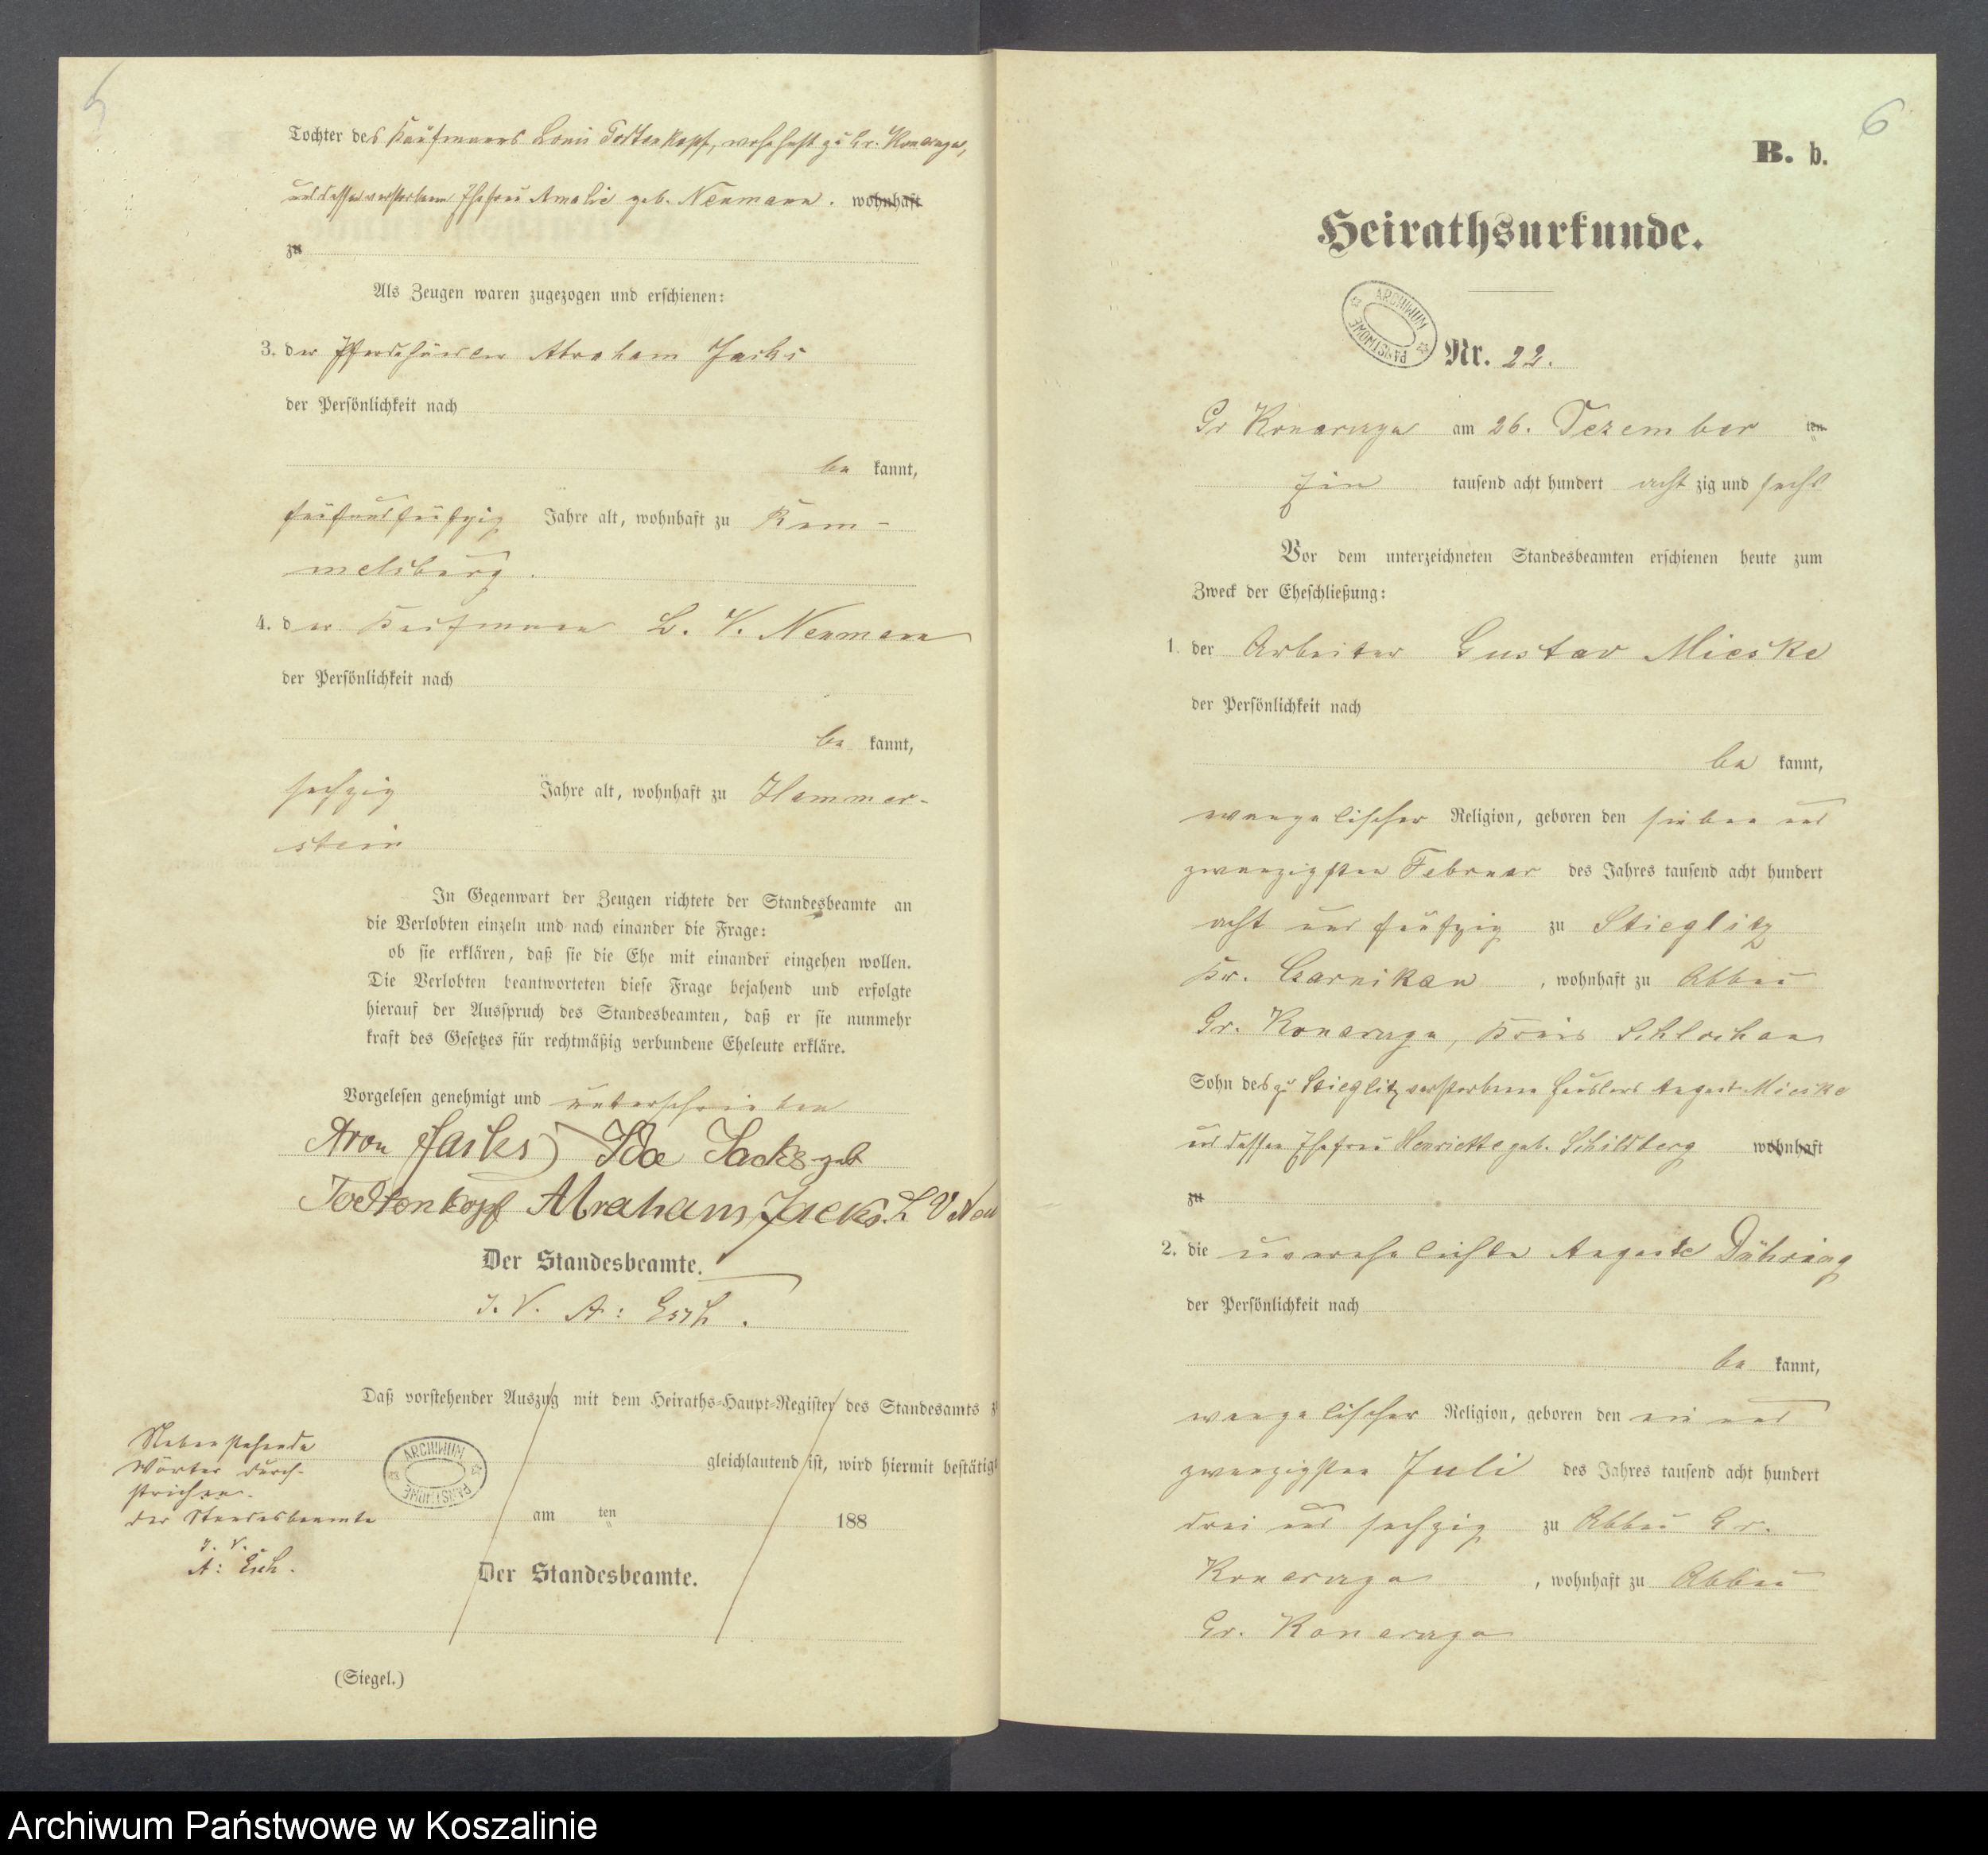 5
Tochter des Kaufmanns Louis Todtenkopf, wohnhaft zu Gr. Konarczyn,
und dessen verstorbenen Ehefrau Amalie geb. Neumann. wohnhaft
zu
Als Zeugen waren zugezogen und erschienen:
3. der Pferdehändler Abraham Jacks
der Persönlichkeit nach
be kannt,
fünfundfünfzig Jahre alt, wohnhaft zu Rum-
melsburg.
4. der Kaufmann L. V. Neumann
der Persönlichkeit nach
be kannt,
sechzig Jahre alt, wohnhaft zu Hammer-
stein
In Gegenwart der Zeugen richtete der Standesbeamte an
die Verlobten einzeln und nach einander die Frage:
ob sie erklären, daß sie die Ehe mit einander eingehen wollen.
Die Verlobten beantworteten diese Frage bejahend und erfolgte
hierauf der Ausspruch des Standesbeamten, daß er sie nunmehr
kraft des Gesetzes für rechtmäßig verbundene Eheleute erkläre.
Vorgelesen genehmigt und unterschrieben
Aron Jacks Ida Jacks geb
Todtenkopf Abraham Jacks. L V Neu
Der Standesbeamte.
I. V. A: Esch.
Daß vorstehender Auszug mit dem Heiraths-Haupt-Register des Standesamts z
gleichlautend ist, wird hiermit bestätigt
am ten 188
Der Standesbeamte.
(Siegel.)
Nebenstehende
Wörter durch-
strichen.
Der Standesbeamte
I. V.
A: Esch.
ARCHIWUM PAŃSTWOWE
6
B. b.
Heirathsurkunde.
ARCHIWUM PAŃSTWOWE
Nr. 22.
Gr Konarczyn am 26. Dezember ten
Ein tausend acht hundert acht zig und sechs
Vor dem unterzeichneten Standesbeamten erschienen heute zum
Zweck der Eheschließung:
1. der Arbeiter Gustav Mieske
der Persönlichkeit nach
be kannt,
evangelischer Religion, geboren den sieben und
zwanzigsten Februar des Jahres tausend acht hundert
acht und fünfzig zu Stieglitz
Kr. Czarnikau, wohnhaft zu Abbau
Gr. Konarczyn, Kreis Schlochau
Sohn des zu Stieglitz verstorbenen Häuslers August Mieske
und dessen Ehefrau Henriette geb. Schildberg wohnhaft
zu
2. die unverehelichte Auguste Dähring
der Persönlichkeit nach
be kannt,
evangelischer Religion, geboren den ein und
zwanzigsten Juli des Jahres tausend acht hundert
drei und sechzig zu Abbau Gr.
Konarczyn, wohnhaft zu Abbau
Gr. Konarczyn
Archiwum Państwowe w Koszalinie